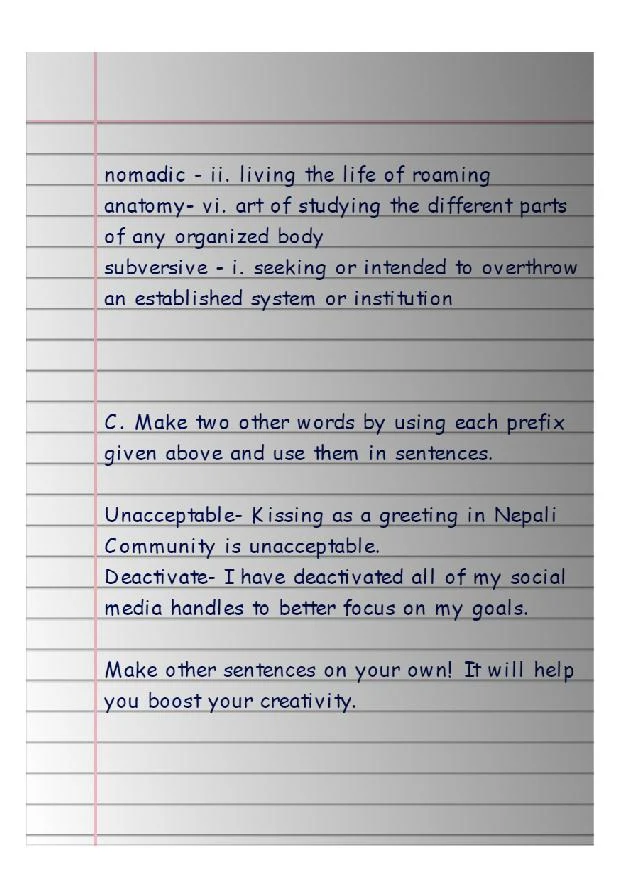 nomadic - ii. living the life of roaming
anatomy- vi. art of studying the different parts
of any organized body
subversive - i. seeking or intended to overthrow
an established system or institution
C. Make two other words by using each prefix
given above and use them in sentences.
Unacceptable- Kissing as a greeting in Nepali
Community is unacceptable.
Deactivate- I have deactivated all of my social
media handles to better focus on my goals.
Make other sentences on your own! It will help
you boost your creativity.